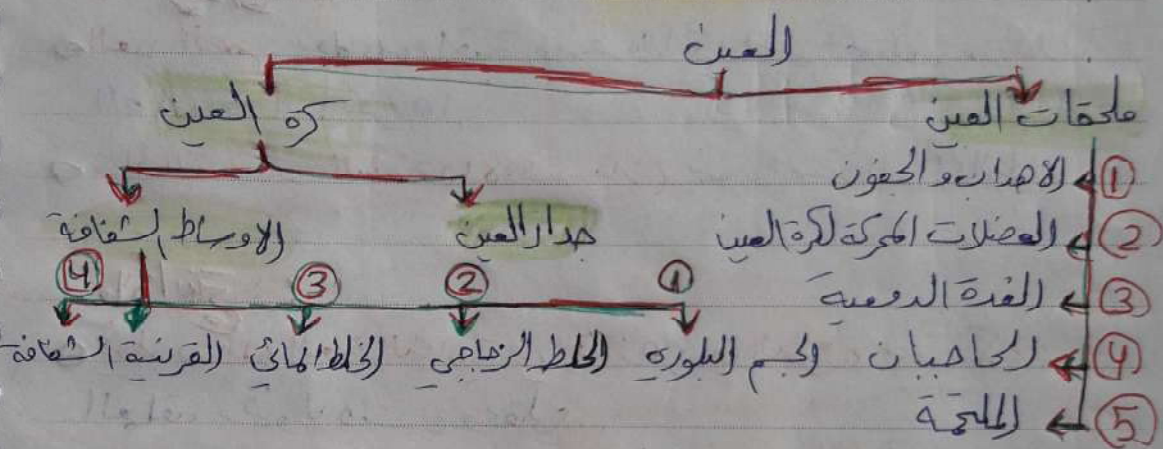 العين
ملحقات العين
كرة العين
① الاهداب والجفون
② العضلات المحركة لكرة العين
③ الغدة الدمعية
④ الحاجبان
⑤ الملتحمة
جدار العين
الاوساط الشفافة
① الجسم البلوري
② الخلط الزجاجي
③ الخلط المائي
④ القرنية الشفافة